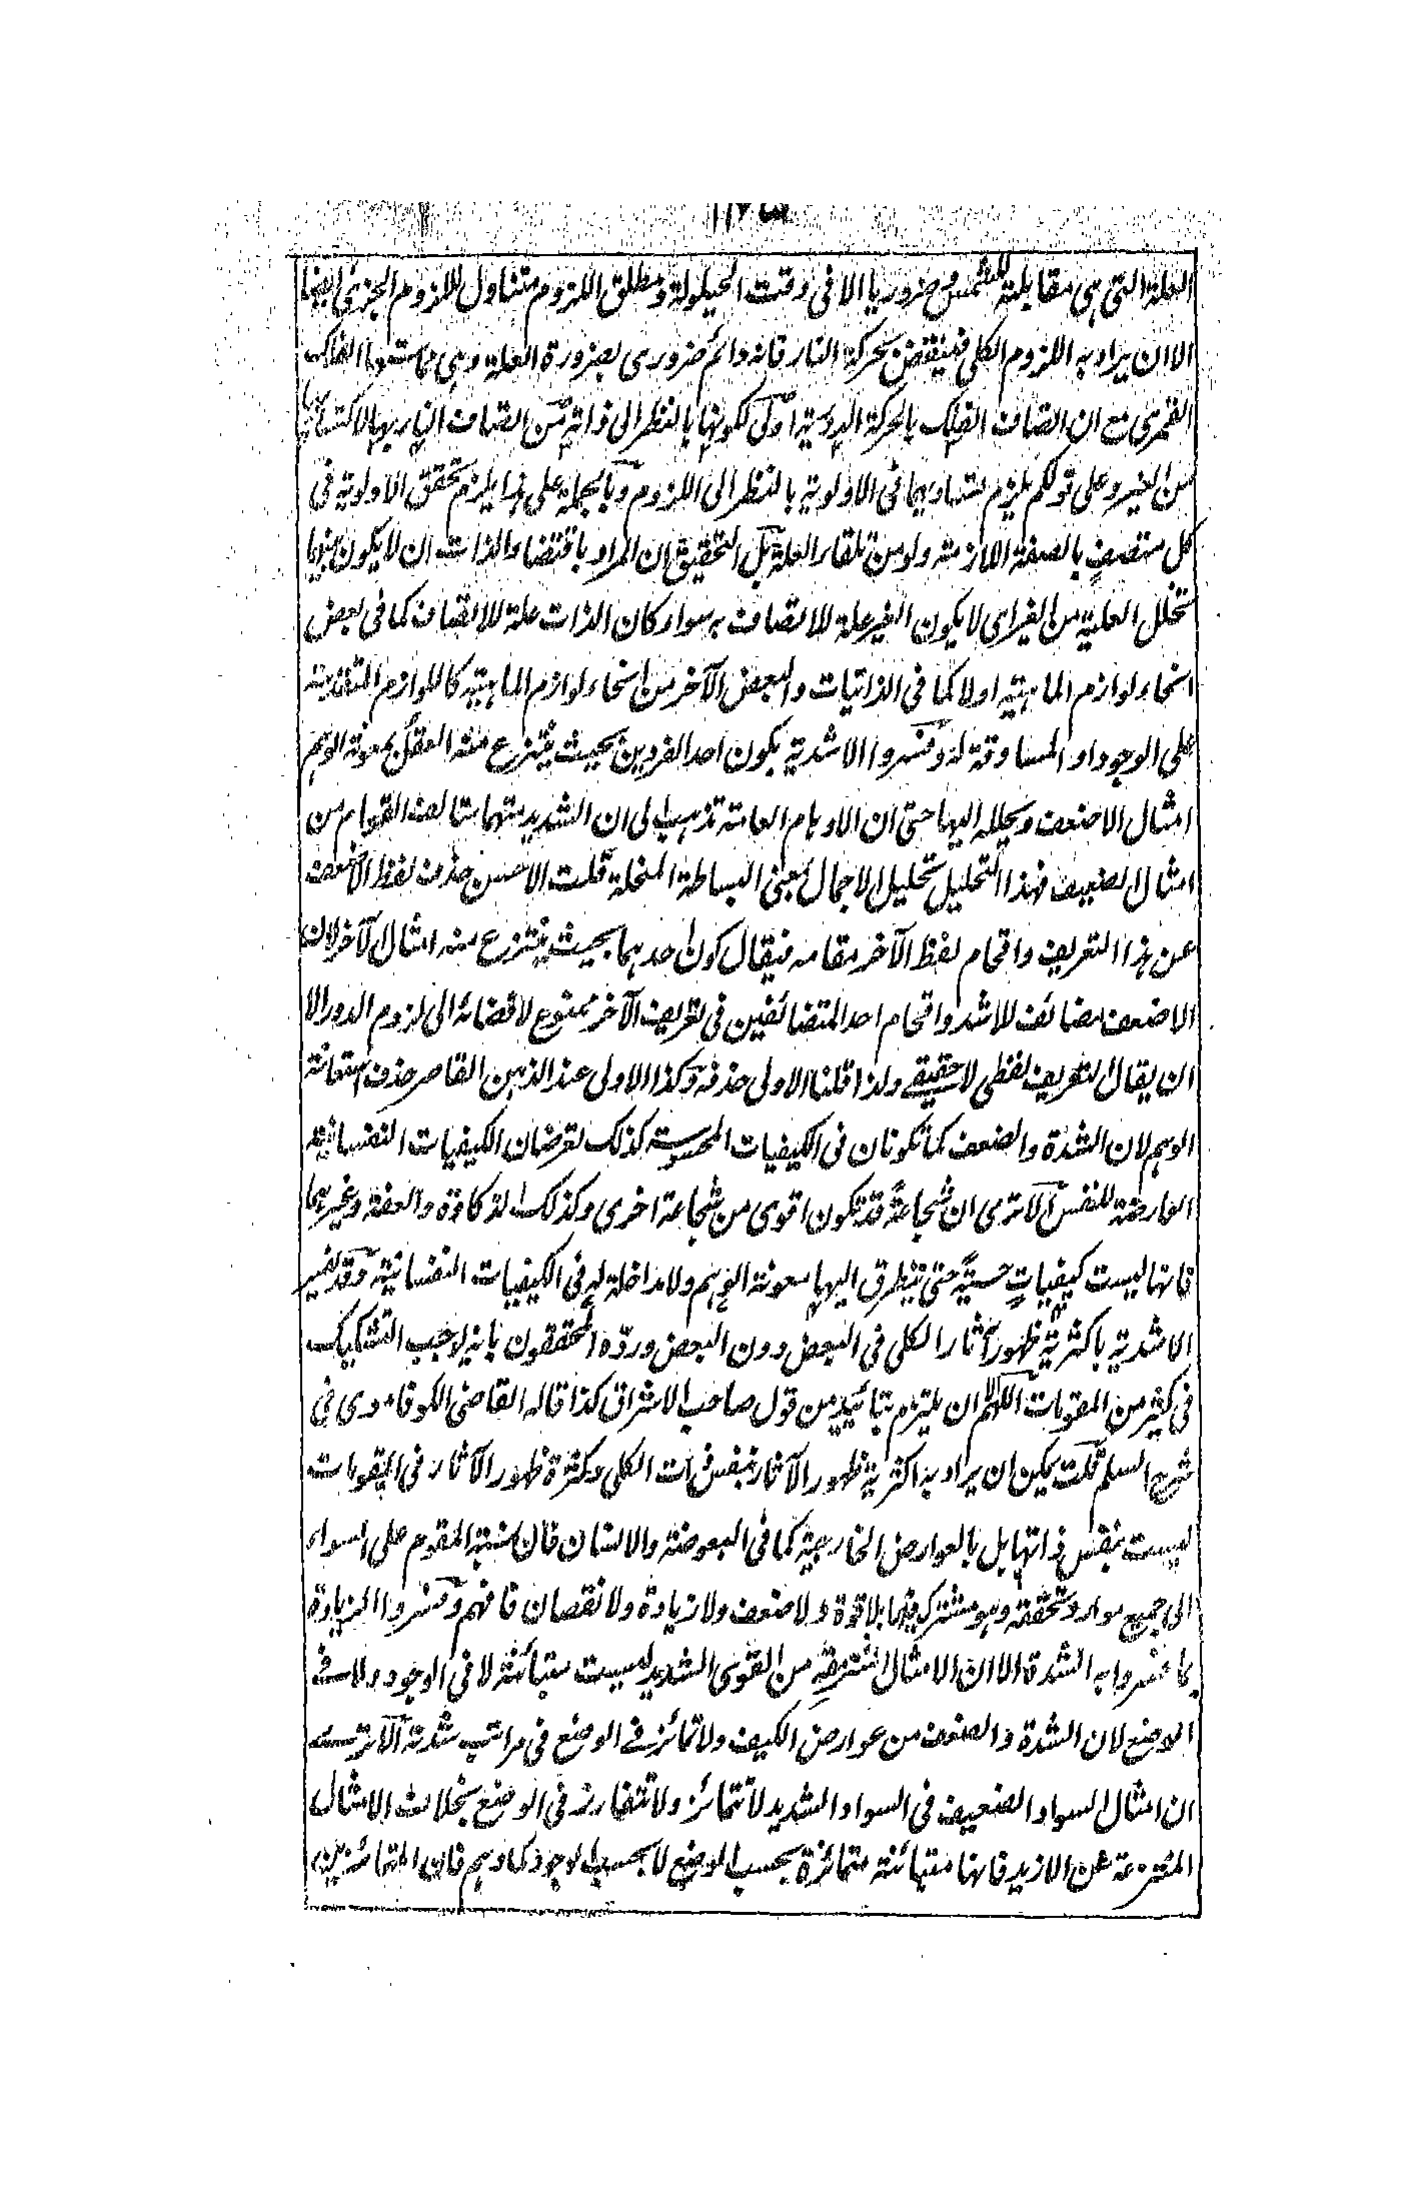 العلة التى هى مقابلة للشمس ضروريا الا فى وقت الحيلولة ومطلق اللزوم متناول للزوم الجزئى ايضا
الا ان يراد به اللزوم الكلى فينتقض بحركة النار فانه دائم ضرورى بضرورة العلة وهى مماستها الفلك
القمرى مع ان اتصاف الفلك بالحركة الدورية اولى لكونها بالنظر الى ذاته من اتصاف النار بها لاكتسابها
من الغير وعلى قولكم يلزم تساويهما فى الاولوية بالنظر الى اللزوم وبالجملة على هذا يلزم تحقق الاولوية فى
كل متصف بالصفة اللازمة ولو من تلقاء العلة بل التحقيق ان المراد باقتضاء الذات ان لا يكون بينهما
تخلل العلية من الغير اى لا يكون الغير علة للاتصاف به سواء كان الذات علة للاتصاف كما فى بعض
انحاء لوازم الماهية او لا كما فى الذاتيات والبعض الآخر من انحاء لوازم الماهية كاللوازم المتقدمة
على الوجود او المساوقة له وفسروا الاشدية بكون احد الفردين بحيث ينتزع منه العقل بمعونة الوهم
امثال الاضعف ويحلله اليها حتى ان الاوهام العامة تذهب الى ان الشديد منهما متالف القوام من
امثال الضعيف فهذا التحليل تحليل الاجمال بمعنى البساطة المنحلة قلت الاحسن حذف لفظ الاضعف
عن هذا التعريف واقحام لفظ الآخر مقامه فيقال كون احدهما بحيث ينتزع منه امثال الآخر لان
الاضعف مضائف للاشد واقحام احد المتضائفين فى تعريف الآخر ممنوع لافضائه الى لزوم الدور الا
ان يقال التعريف لفظى لا حقيقے ولذا قلنا الاولى حذفه وكذا الاولى عند الذهن القاصر حذف استعانة
الوهم لان الشدة والضعف كما تكونان فى الكيفيات المحسوسة كذلك تعرضان الكيفيات النفسانية
العارضة للنفس الا ترى ان شجاعةً قد تكون اقوى من شجاعة اخرى وكذلك الذكاوة والعفة وغيرهما
فانها ليست كيفياتٍ حسيةً حتى تتطرق اليها معونة الوهم ولا مداخلة له فى الكيفيات النفسانية وقد تفسر
الاشدية باكثرية ظهور آثار الكلى فى البعض دون البعض وردّه المحققون بانه يوجب التشكيك
فى كثير من المقومات اللهم الا ان يلتزم بتائيد من قول صاحب الاشراق كذا قاله القاضى الكوفاموى فى
شرح السلم قلت يمكن ان يراد به اكثرية ظهور الآثار بنفس ذات الكلى وكثرة ظهور الآثار فى المقومات
ليست بنفس ذاتها بل بالعوارض الخارجية كما فى البعوضة والانسان فان نسبة المقوم على السواء
الى جميع موارد تحققه وهو مشترك فيها بلا قوة ولا ضعف ولا زيادة ولا نقصان فافهم وفسروا الزيادة
بما فسروا به الشدة الا ان الامثال المنتزعة من القوى الشديد ليست متبائنة لا فى الوجود ولا فے
الوضع لان الشدة والضعف من عوارض الكيف ولا تمائز فے الوضع فى مراتب شدته الا ترے
ان امثال السواد الضعيف فى السواد الشديد لا تتمائز ولا تتفارز فى الوضع بخلاف الامثال
المنتزعة عن الازيد فانها متبائنة متمائزة بحسب الوضع لا بحسب الوجود كما وهم فان المتمائزين